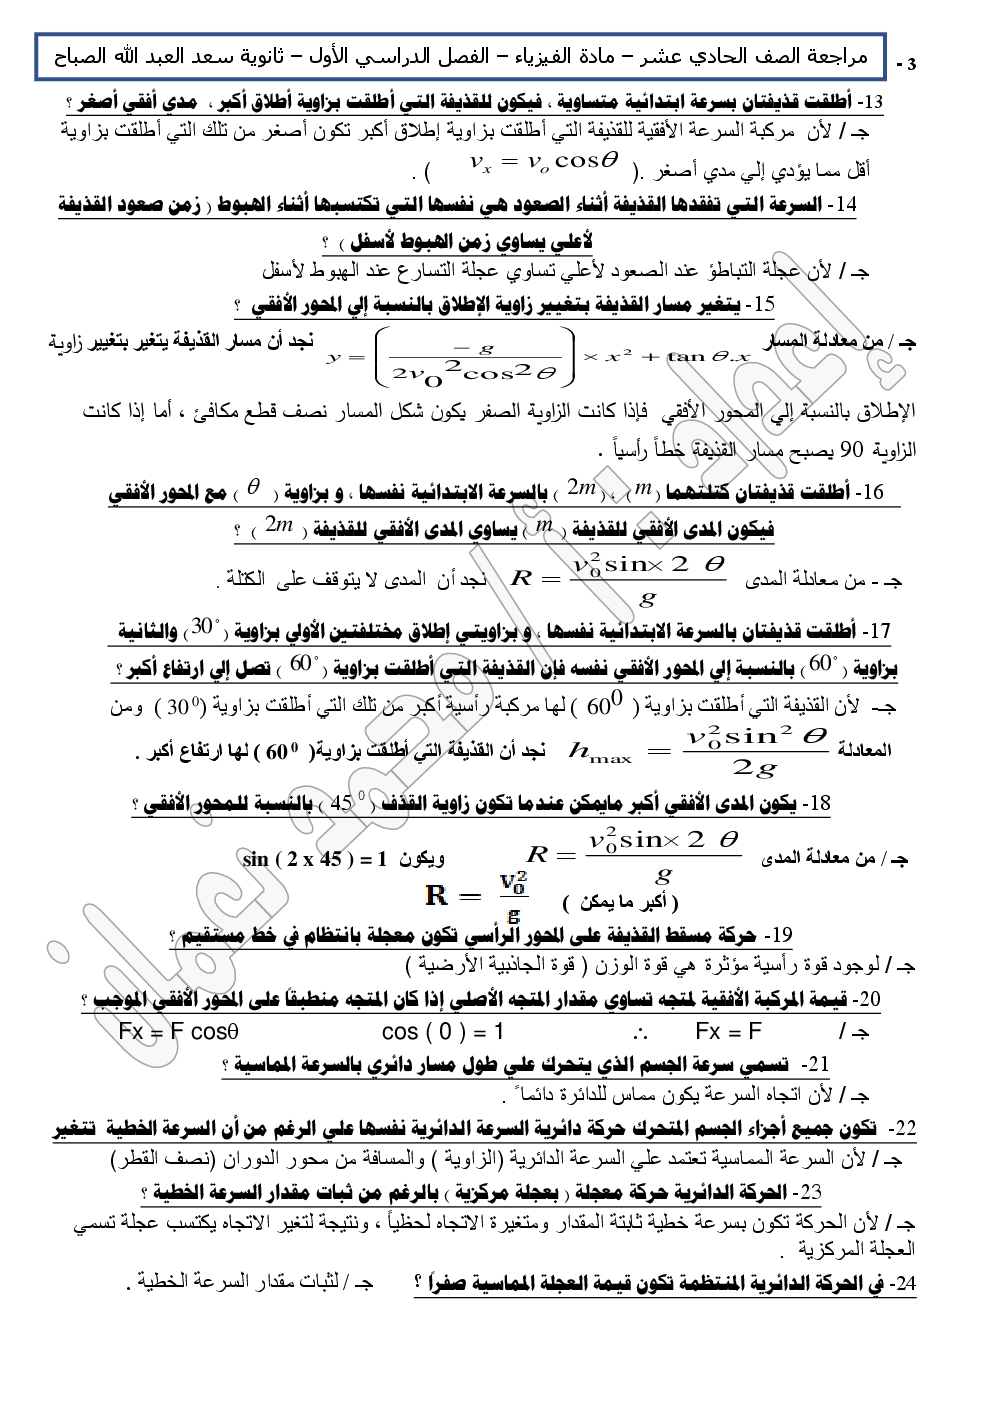 3 -
مراجعة الصف الحادي عشر – مادة الفيزياء – الفصل الدراسي الأول – ثانوية سعد العبد الله الصباح
13- أطلقت قذيفتان بسرعة ابتدائية متساوية ، فيكون للقذيفة التي أطلقت بزاوية أطلاق أكبر ، مدي أفقي أصغر ؟
جـ / لأن مركبة السرعة الأفقية للقذيفة التي أطلقت بزاوية إطلاق أكبر تكون أصغر من تلك التي أطلقت بزاوية
أقل مما يؤدي إلي مدي أصغر .( vx = vo cosθ ) .
14- السرعة التي تفقدها القذيفة أثناء الصعود هي نفسها التي تكتسبها أثناء الهبوط ( زمن صعود القذيفة
لأعلي يساوي زمن الهبوط لأسفل ) ؟
جـ / لأن عجلة التباطؤ عند الصعود لأعلي تساوي عجلة التسارع عند الهبوط لأسفل
15- يتغير مسار القذيفة بتغيير زاوية الإطلاق بالنسبة إلي المحور الأفقي ؟
جـ / من معادلة المسار y = ( −g / 2v0²cos2θ ) × x² + tan θ.x نجد أن مسار القذيفة يتغير بتغيير زاوية
الإطلاق بالنسبة إلي المحور الأفقي فإذا كانت الزاوية الصفر يكون شكل المسار نصف قطع مكافئ ، أما إذا كانت
الزاوية 90 يصبح مسار القذيفة خطاً رأسياً .
16- أطلقت قذيفتان كتلتهما ( m ) ، ( 2m ) بالسرعة الابتدائية نفسها ، و بزاوية ( θ ) مع المحور الأفقي
فيكون المدى الأفقي للقذيفة ( m ) يساوي المدى الأفقي للقذيفة ( 2m ) ؟
جـ - من معادلة المدى R = v0² sin× 2 θ / g نجد أن المدى لا يتوقف على الكتلة .
17- أطلقت قذيفتان بالسرعة الابتدائية نفسها ، و بزاويتي إطلاق مختلفتين الأولي بزاوية ( 30° ) والثانية
بزاوية ( 60° ) بالنسبة إلي المحور الأفقي نفسه فإن القذيفة التي أطلقت بزاوية ( 60° ) تصل إلي ارتفاع أكبر ؟
جـ- لأن القذيفة التي أطلقت بزاوية ( 60⁰ ) لها مركبة رأسية أكبر من تلك التي أطلقت بزاوية ( 30⁰ ) ومن
المعادلة hmax = v0² sin² θ / 2g نجد أن القذيفة التي أطلقت بزاوية( 60⁰ ) لها ارتفاع أكبر .
18- يكون المدى الأفقي أكبر مايمكن عندما تكون زاوية القذف ( 45⁰ ) بالنسبة للمحور الأفقي ؟
جـ / من معادلة المدى R = v0² sin× 2 θ / g ويكون sin ( 2 x 45 ) = 1
R = v0² / g ( أكبر ما يمكن )
19- حركة مسقط القذيفة على المحور الرأسي تكون معجلة بانتظام في خط مستقيم ؟
جـ / لوجود قوة رأسية مؤثرة هي قوة الوزن ( قوة الجاذبية الأرضية )
20- قيمة المركبة الأفقية لمتجه تساوي مقدار المتجه الأصلي إذا كان المتجه منطبقاً على المحور الأفقي الموجب ؟
جـ / Fx = F cosθ cos ( 0 ) = 1 ∴ Fx = F
21- تسمي سرعة الجسم الذي يتحرك علي طول مسار دائري بالسرعة المماسية ؟
جـ / لأن اتجاه السرعة يكون مماس للدائرة دائماً .
22- تكون جميع أجزاء الجسم المتحرك حركة دائرية السرعة الدائرية نفسها علي الرغم من أن السرعة الخطية تتغير
جـ / لأن السرعة المماسية تعتمد علي السرعة الدائرية (الزاوية ) والمسافة من محور الدوران (نصف القطر)
23- الحركة الدائرية حركة معجلة ( بعجلة مركزية ) بالرغم من ثبات مقدار السرعة الخطية ؟
جـ / لأن الحركة تكون بسرعة خطية ثابتة المقدار ومتغيرة الاتجاه لحظياً ، ونتيجة لتغير الاتجاه يكتسب عجلة تسمي
العجلة المركزية .
24- في الحركة الدائرية المنتظمة تكون قيمة العجلة المماسية صفراً ؟ جـ / لثبات مقدار السرعة الخطية .
إعداد : أ / محمد نعمان